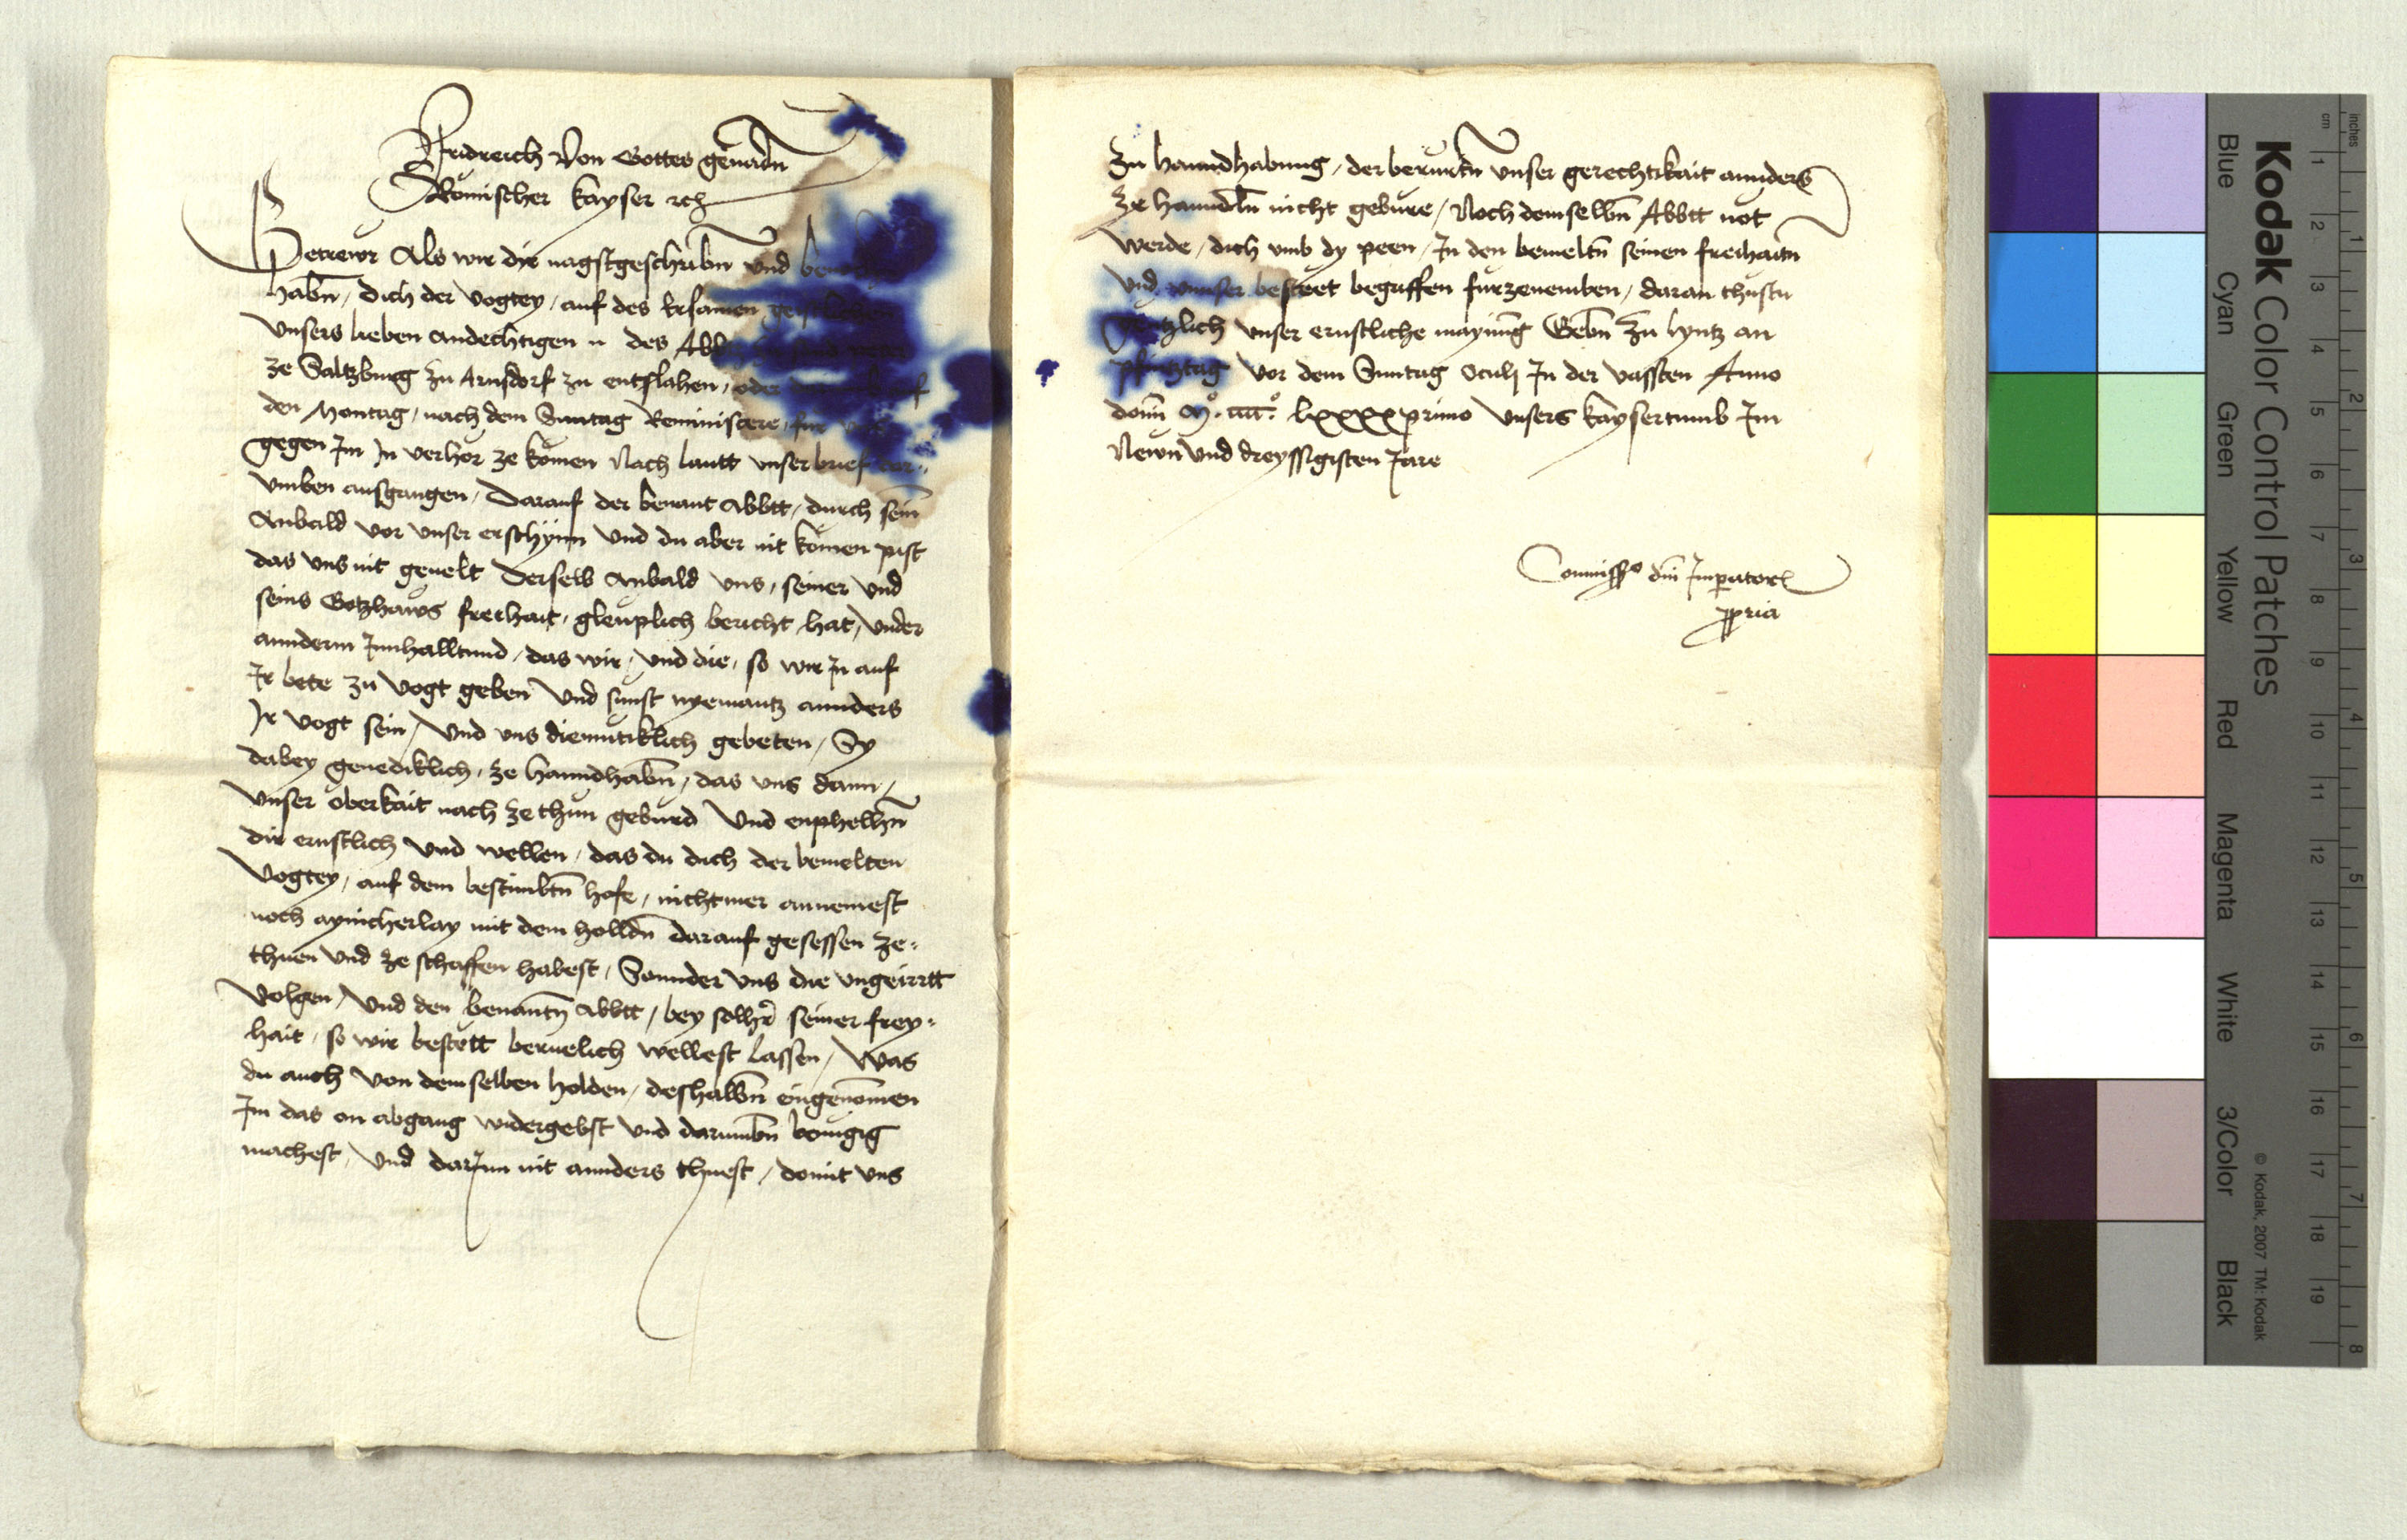 Fridreich Von Gottes genadn̄
Römischer kayser ꝛcꝫ
Getrewr Als wir dir nagstgeschribn̄ und
habn̄ / dich der vogtey / auf des Ersamen geistlichen
unsers lieben andechtigen n des
ze Saltzburg zu Arnsdorf zu entslahen / oder
den Montag / nach dem Suntag Reminiscere / fur uns
gegen Im In verhor ze komen Nach lautt unser brief dar⸗
umben ausgangen / Darauf der benant Abbtt / durch sein
Anbald vor unser erschynn Und du aber nit komen pist
das uns nit geuelt Derselb Anbald uns / seiner und
seins Gotzhaws freihait / gleuplich bericht hat / under
annderm Innhalltund / das wir / und die / so wir In auf
Ir bete zu vogt geben Und sunst nyemantz annders
Ir vogt sein / Und uns diemutiklich gebeten / Sy
dabey genediklich / ze hanndhabn̄ / das uns dann /
unser oberkait nach ze thun geburd Und enphelhn̄
dir ernstlich Und wellen / das du dich der bemelten
Vogtey / auf dem bestimbtn̄ hofe / nichtmer annemest
noch aynicherlay mit dem holldn̄ darauf gesessen ze⸗
thuen und ze schaffen habest / Sonnder uns die ungeirrtt
Volgen / Und den benantn̄ Abbtt / bey solhr̄ seiner frey⸗
hait / so wir bestett beruelich wellest lassen / Was
du auch von demselben holden / deshalbn̄ eingenomen
Im das on abgang widergebst Und darumbn̄ benügig
machest / Und darjnn nit annders thuest / domit uns
zu hanndhabung / der berurtn̄ unser gerechtikait annders
ze hanndln̄ nicht gebure / Noch demselbn̄ Abbtt not
werde / dich umb dy peen / In den bemeltn̄ seinen freihaitn̄
Und unnser besteet begriffen furzenemben / daran thustu
gentzlich unser ernstliche maynūg Gebn̄ Zu lyntz an
phintztag vor dem Suntag Oculj In der vassten Anno
domī Mͦ. cccc.ͦ lxxxxprimo Unsers kaysertumb Im
Newn und dreyssigisten Jare
Commissͦ dn̄i Imꝑator(is)
ꝓpria
Kodak Color Control Patches
Blue Cyan Green Yellow Red Magenta White 3/Color Black
cm 1 2 3 4 5 6 7 8 9 10 11 12 13 14 15 16 17 18 19
inches 1 2 3 4 5 6 7 8
© Kodak, 2007 TM: Kodak